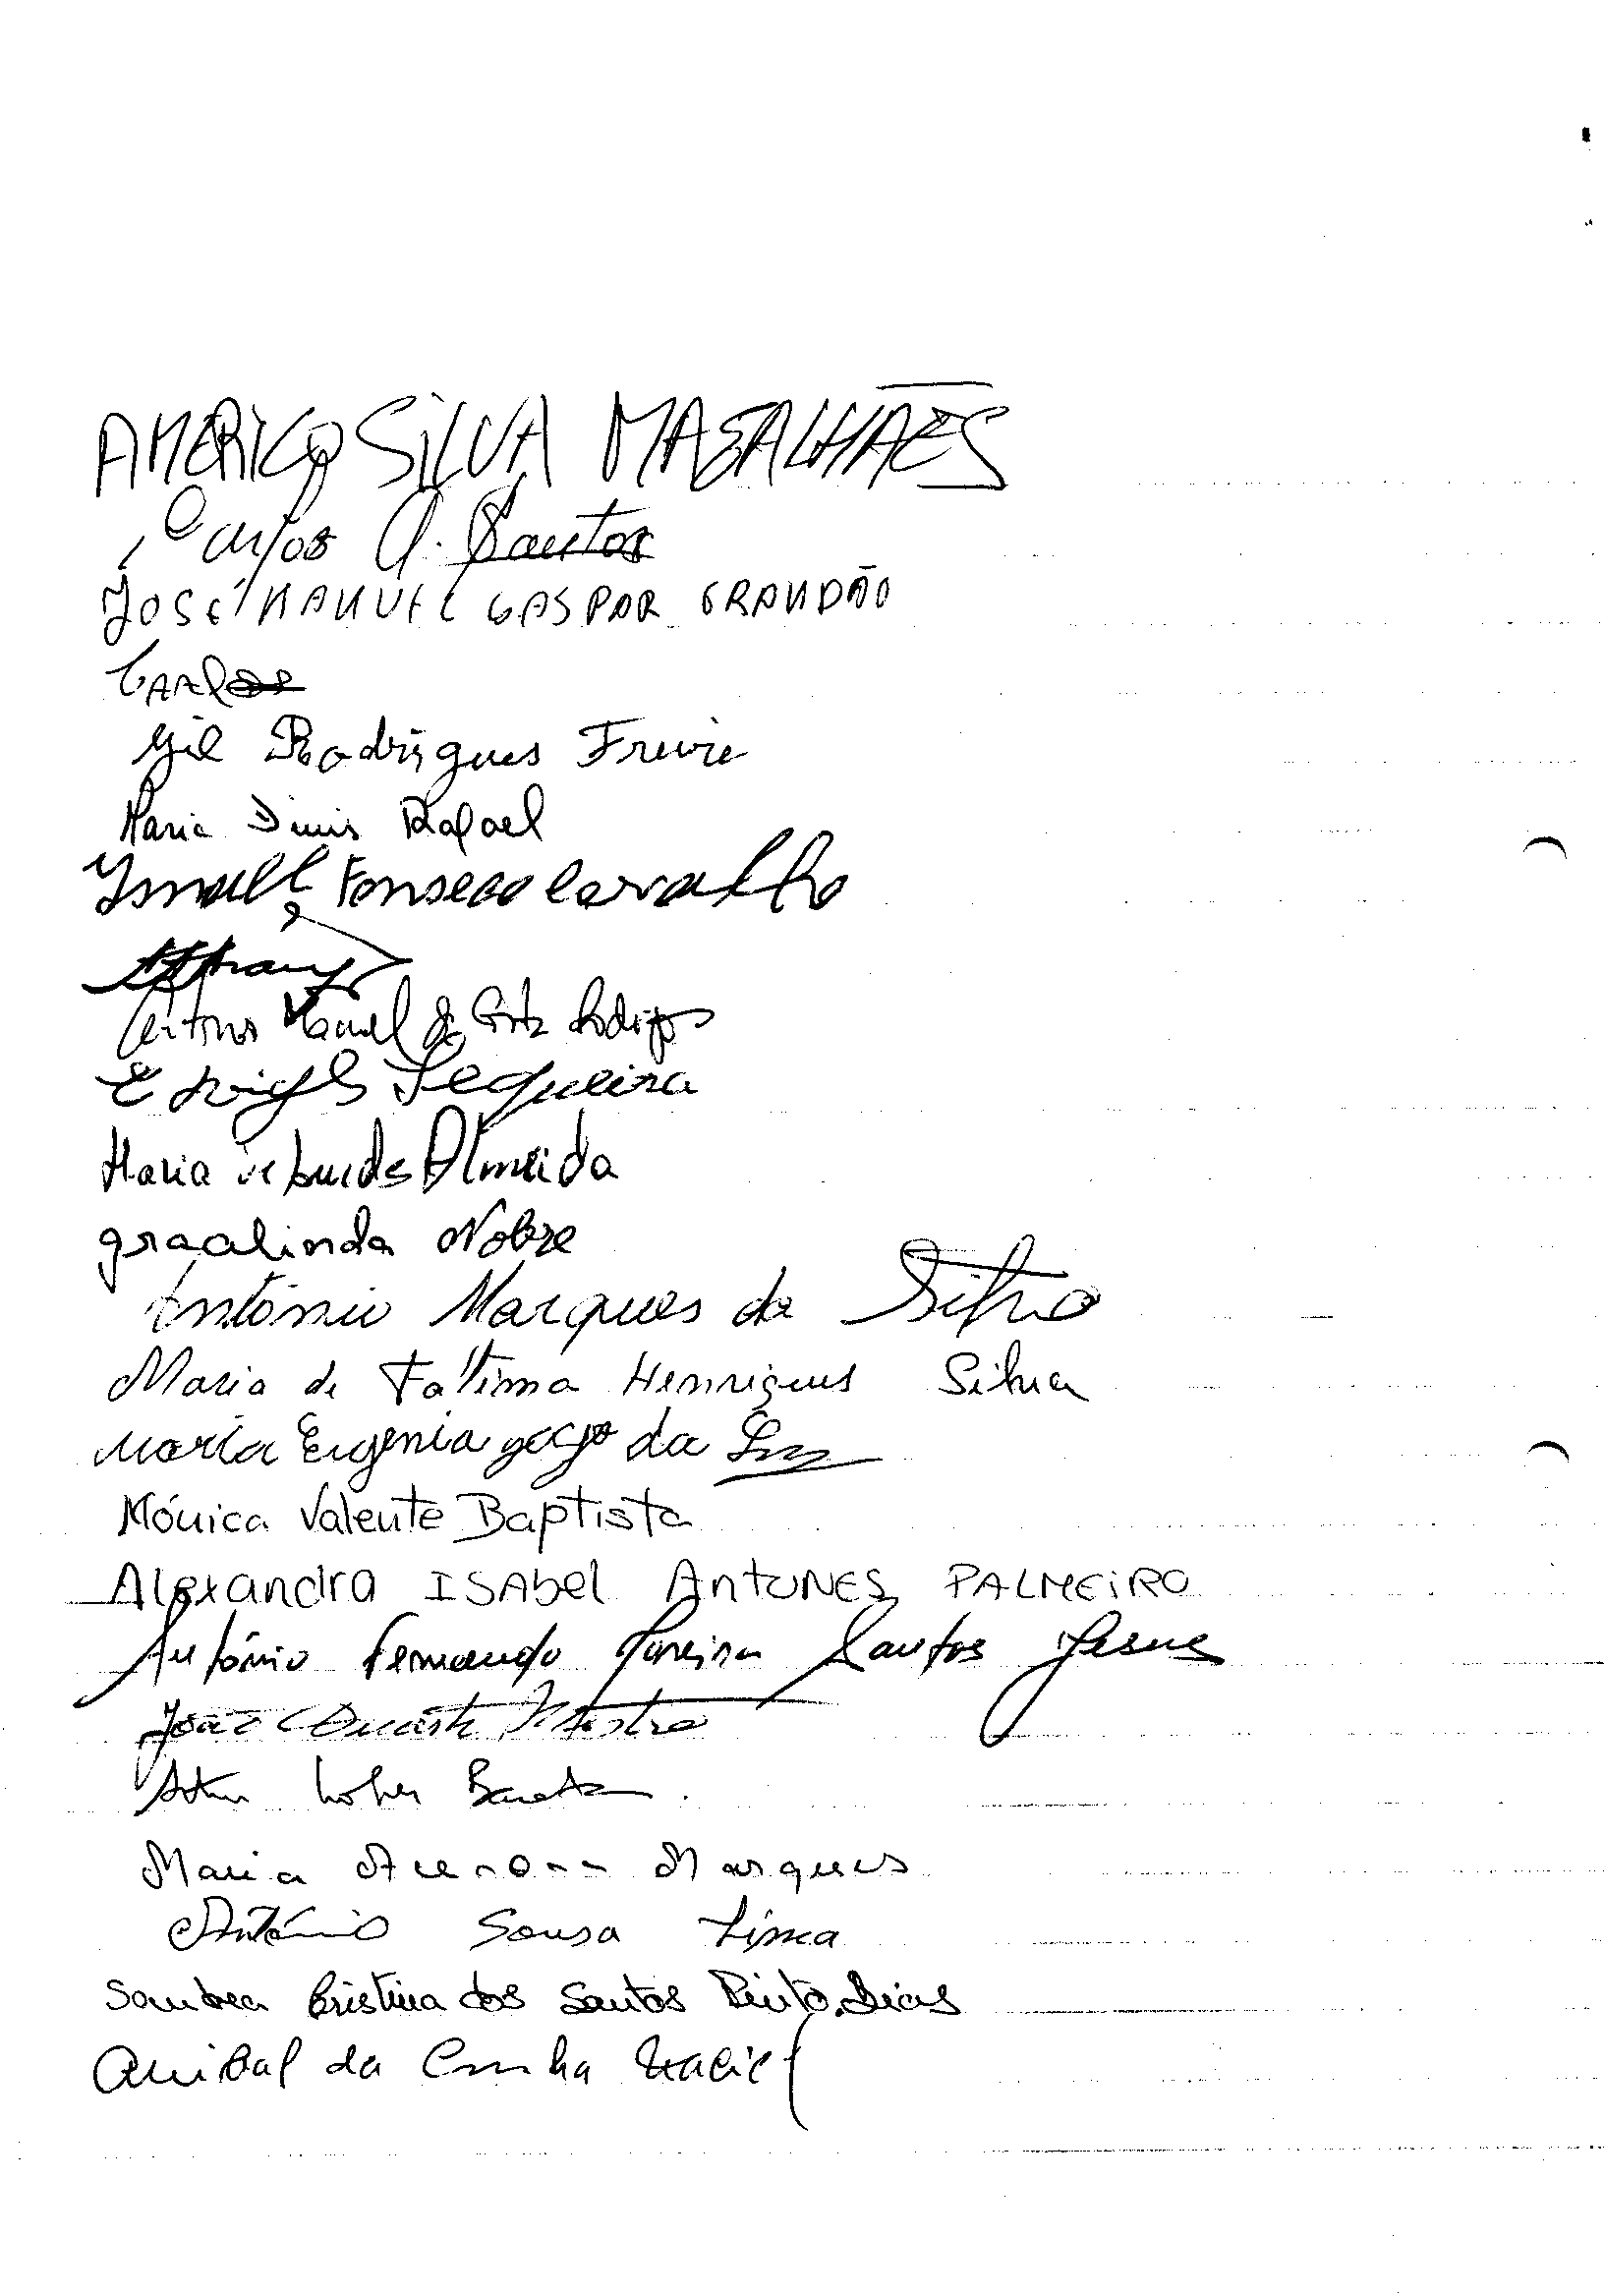 AMÉRICO SILVA MAGALHÃES
Carlos A. Santos
JOSÉ MANUEL GASPAR GRANDÃO
Carlos
Gil Rodrigues Freire
Maria Dinis Rafael
Ismael Fonseca Carvalho
António Manuel da Costa Rodrigues
Sequeira
Maria de Lurdes Almeida
gracalinda Nobre
António Marques da Silva
Maria de Fátima Henriques Silva
Maria Eugenia gago da Luz
Mónica Valente Baptista
Alexandra ISAbel AntUNES PALMEiRO
António Fernando Pereira Santos Jesus
João Duarte Mestre
Maria Marques
António Sousa Lima
Sandra Cristina dos Santos Pinto Dias
Anibal da Cunha Maciel